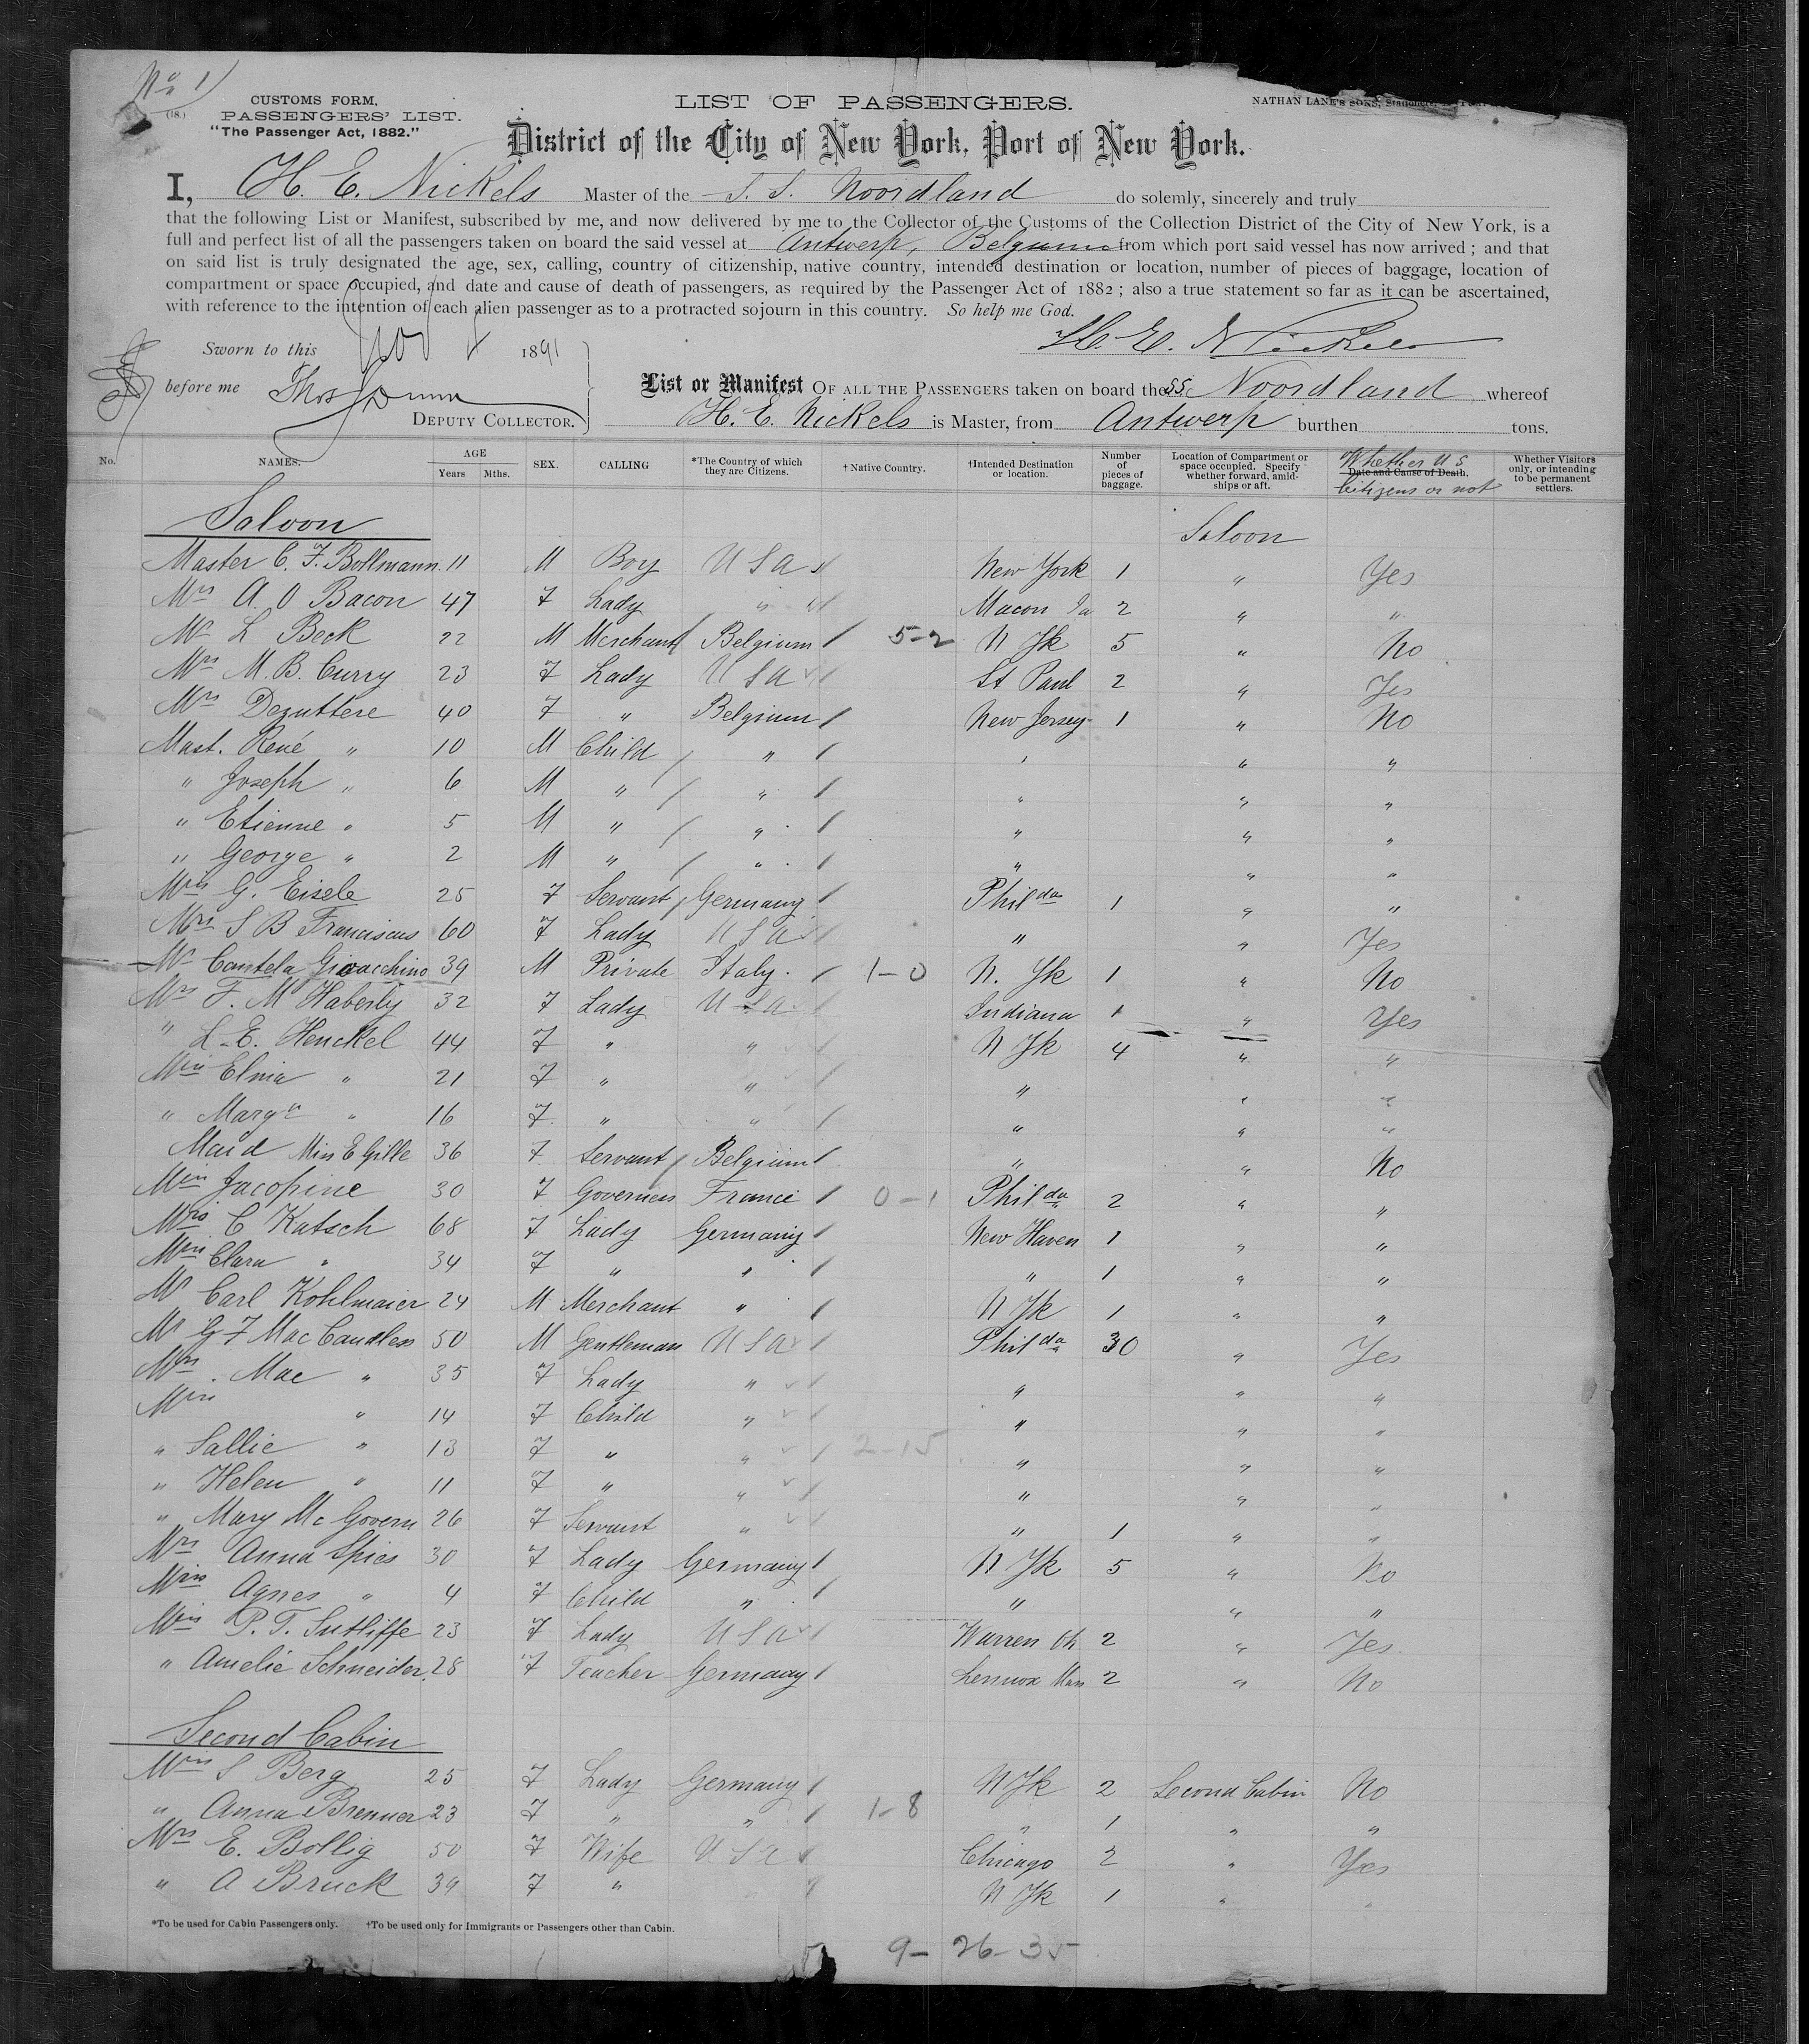 No 1
(18.)
CUSTOMS FORM,
PASSENGERS' LIST.
"The Passenger Act, 1882."
LIST OF PASSENGERS.
NATHAN LANE'S SONS,
District of the City of New York, Port of New York.
I, H. E. Nickels Master of the S. S. Noordland do solemly, sincerely and truly
that the following List or Manifest, subscribed by me, and now delivered by me to the Collector of the Customs of the Collection District of the City of New York, is a
full and perfect list of all the passengers taken on board the said vessel at Antwerp, Belgium from which port said vessel has now arrived ; and that
on said list is truly designated the age, sex, calling, country of citizenship, native country, intended destination or location, number of pieces of baggage, location of
compartment or space occupied, and date and cause of death of passengers, as required by the Passenger Act of 1882 ; also a true statement so far as it can be ascertained,
with reference to the intention of each alien passenger as to a protracted sojourn in this country. So help me God.
H. E. Nickels
Sworn to this Nov 4 1891
before me Thos Dunn
DEPUTY COLLECTOR.
List or Manifest OF ALL THE PASSENGERS taken on board the SS Noordland whereof
H. E. Nickels is Master, from Antwerp burthen tons.
No. NAMES. AGE Years Mths. SEX. CALLING *The Country of which they are Citizens. †Native Country. †Intended Destination or location. Number of pieces of baggage. Location of Compartment or space occupied. Specify whether forward, amidships or aft. Date and Cause of Death. Whether U S Citizens or not Whether Visitors only, or intending to be permanent settlers.
Saloon Saloon
Master C. F. Bollmann 11 M Boy U S A New York 1 " Yes
Mrs A. O Bacon 47 F Lady " " Macon Ga 2 " "
Mr L Beck 22 M Merchant Belgium 5-2 N Yk 5 " No
Mrs M. B. Curry 23 F Lady U S A St Paul 2 " Yes
Mrs Dezuttere 40 F " Belgium New Jersey 1 " No
Mast. René " 10 M Child " " " "
" Joseph " 6 M " " " " "
" Etienne " 5 M " " " " "
" George " 2 M " " " " "
Miss G. Eisele 25 F Servant Germany Philda 1 " "
Mrs S B Franciscus 60 F Lady U S A " " Yes
Mr Cantela Gioacchino 39 M Private Italy. 1-0 N. Yk 1 " No
Mrs F. M Haberly 32 F Lady U S A Indiana 1 " Yes
" L. E. Henckel 44 F " " N Yk 4 " "
Miss Elnia " 21 F " " " " "
" Mary " 16 F " " " " "
Maid Miss E Gille 36 F Servant Belgium " " No
Miss Jacopine 30 F Governess France 0-1 Philda 2 " "
Mrs C Katsch 68 F Lady Germany New Haven 1 " "
Miss Clara " 34 F " " " 1 " "
Mr Carl Kohlmaier 24 M Merchant " N Yk 1 " "
Mr G F Mac Candless 50 M Gentleman U S A Philda 30 " Yes
Mrs . Mac " 35 F Lady " " " "
Miss " 14 F Child " " " "
" Sallie " 13 F " " 2-15 " " "
" Helen " 11 F " " " " "
" Mary Mc Govern 26 F Servant " " 1 " "
Mrs Anna Spies 30 F Lady Germany N Yk 5 " No
Miss Agnes " 4 F Child " " " "
Miss P. T. Sutliffe 23 F Lady U S A Warren Oh 2 " Yes
" Amelie Schneider 28 F Teacher Germany Lennox Mass 2 " No
Second Cabin
Miss S Berg 25 F Lady Germany N Yk 2 Second Cabin No
" Anna Brenner 23 F " " 1-8 " 1 " "
Mrs E. Bollig 50 F Wife U S A Chicago 2 " Yes
" A Bruck 39 F " N Yk 1 " "
*To be used for Cabin Passengers only. †To be used only for Immigrants or Passengers other than Cabin.
9- 26-35